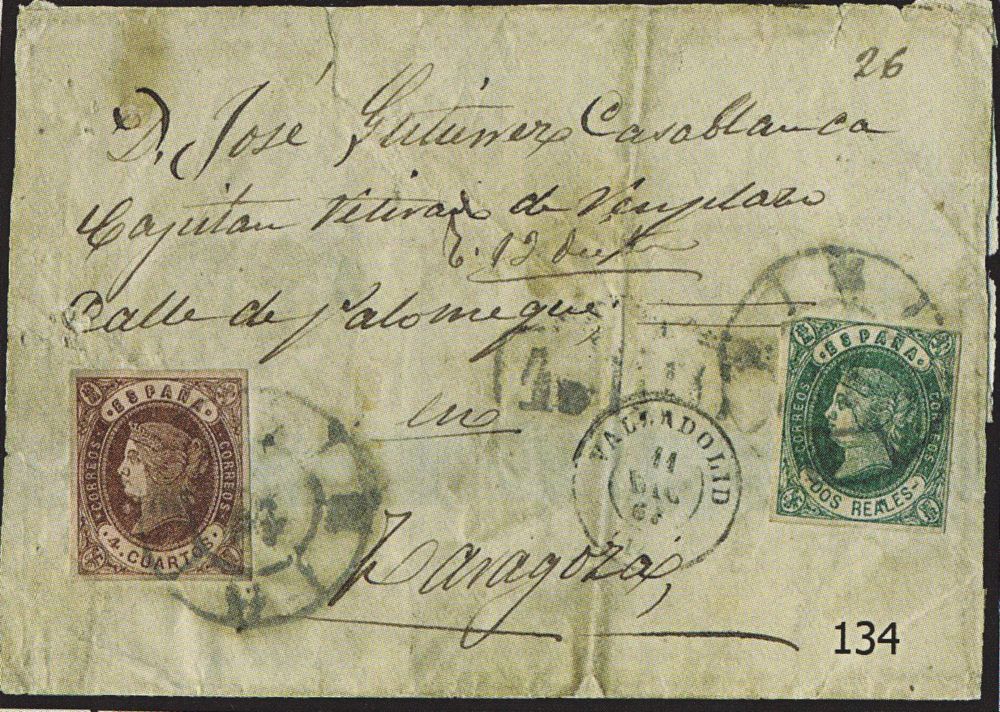 26
D. José Gutierrez Casablanca
Capitan retirado de
Calle de Palomeque
en
Zaragoza,
ESPAÑA
CORREOS
CORREOS
4. CUARTOS
VALLADOLID
11
DIC
ESPAÑA
CORREOS
CORREOS
DOS REALES
134